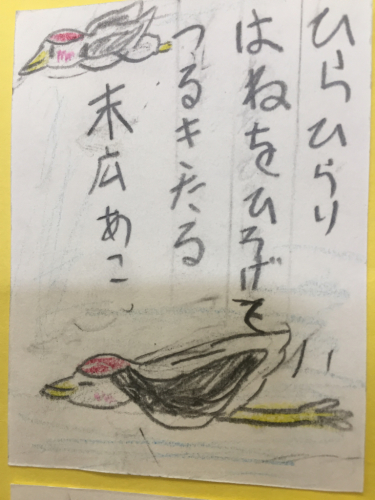 ひらひらり
はねをひろげて
つるきたる
末広あこ